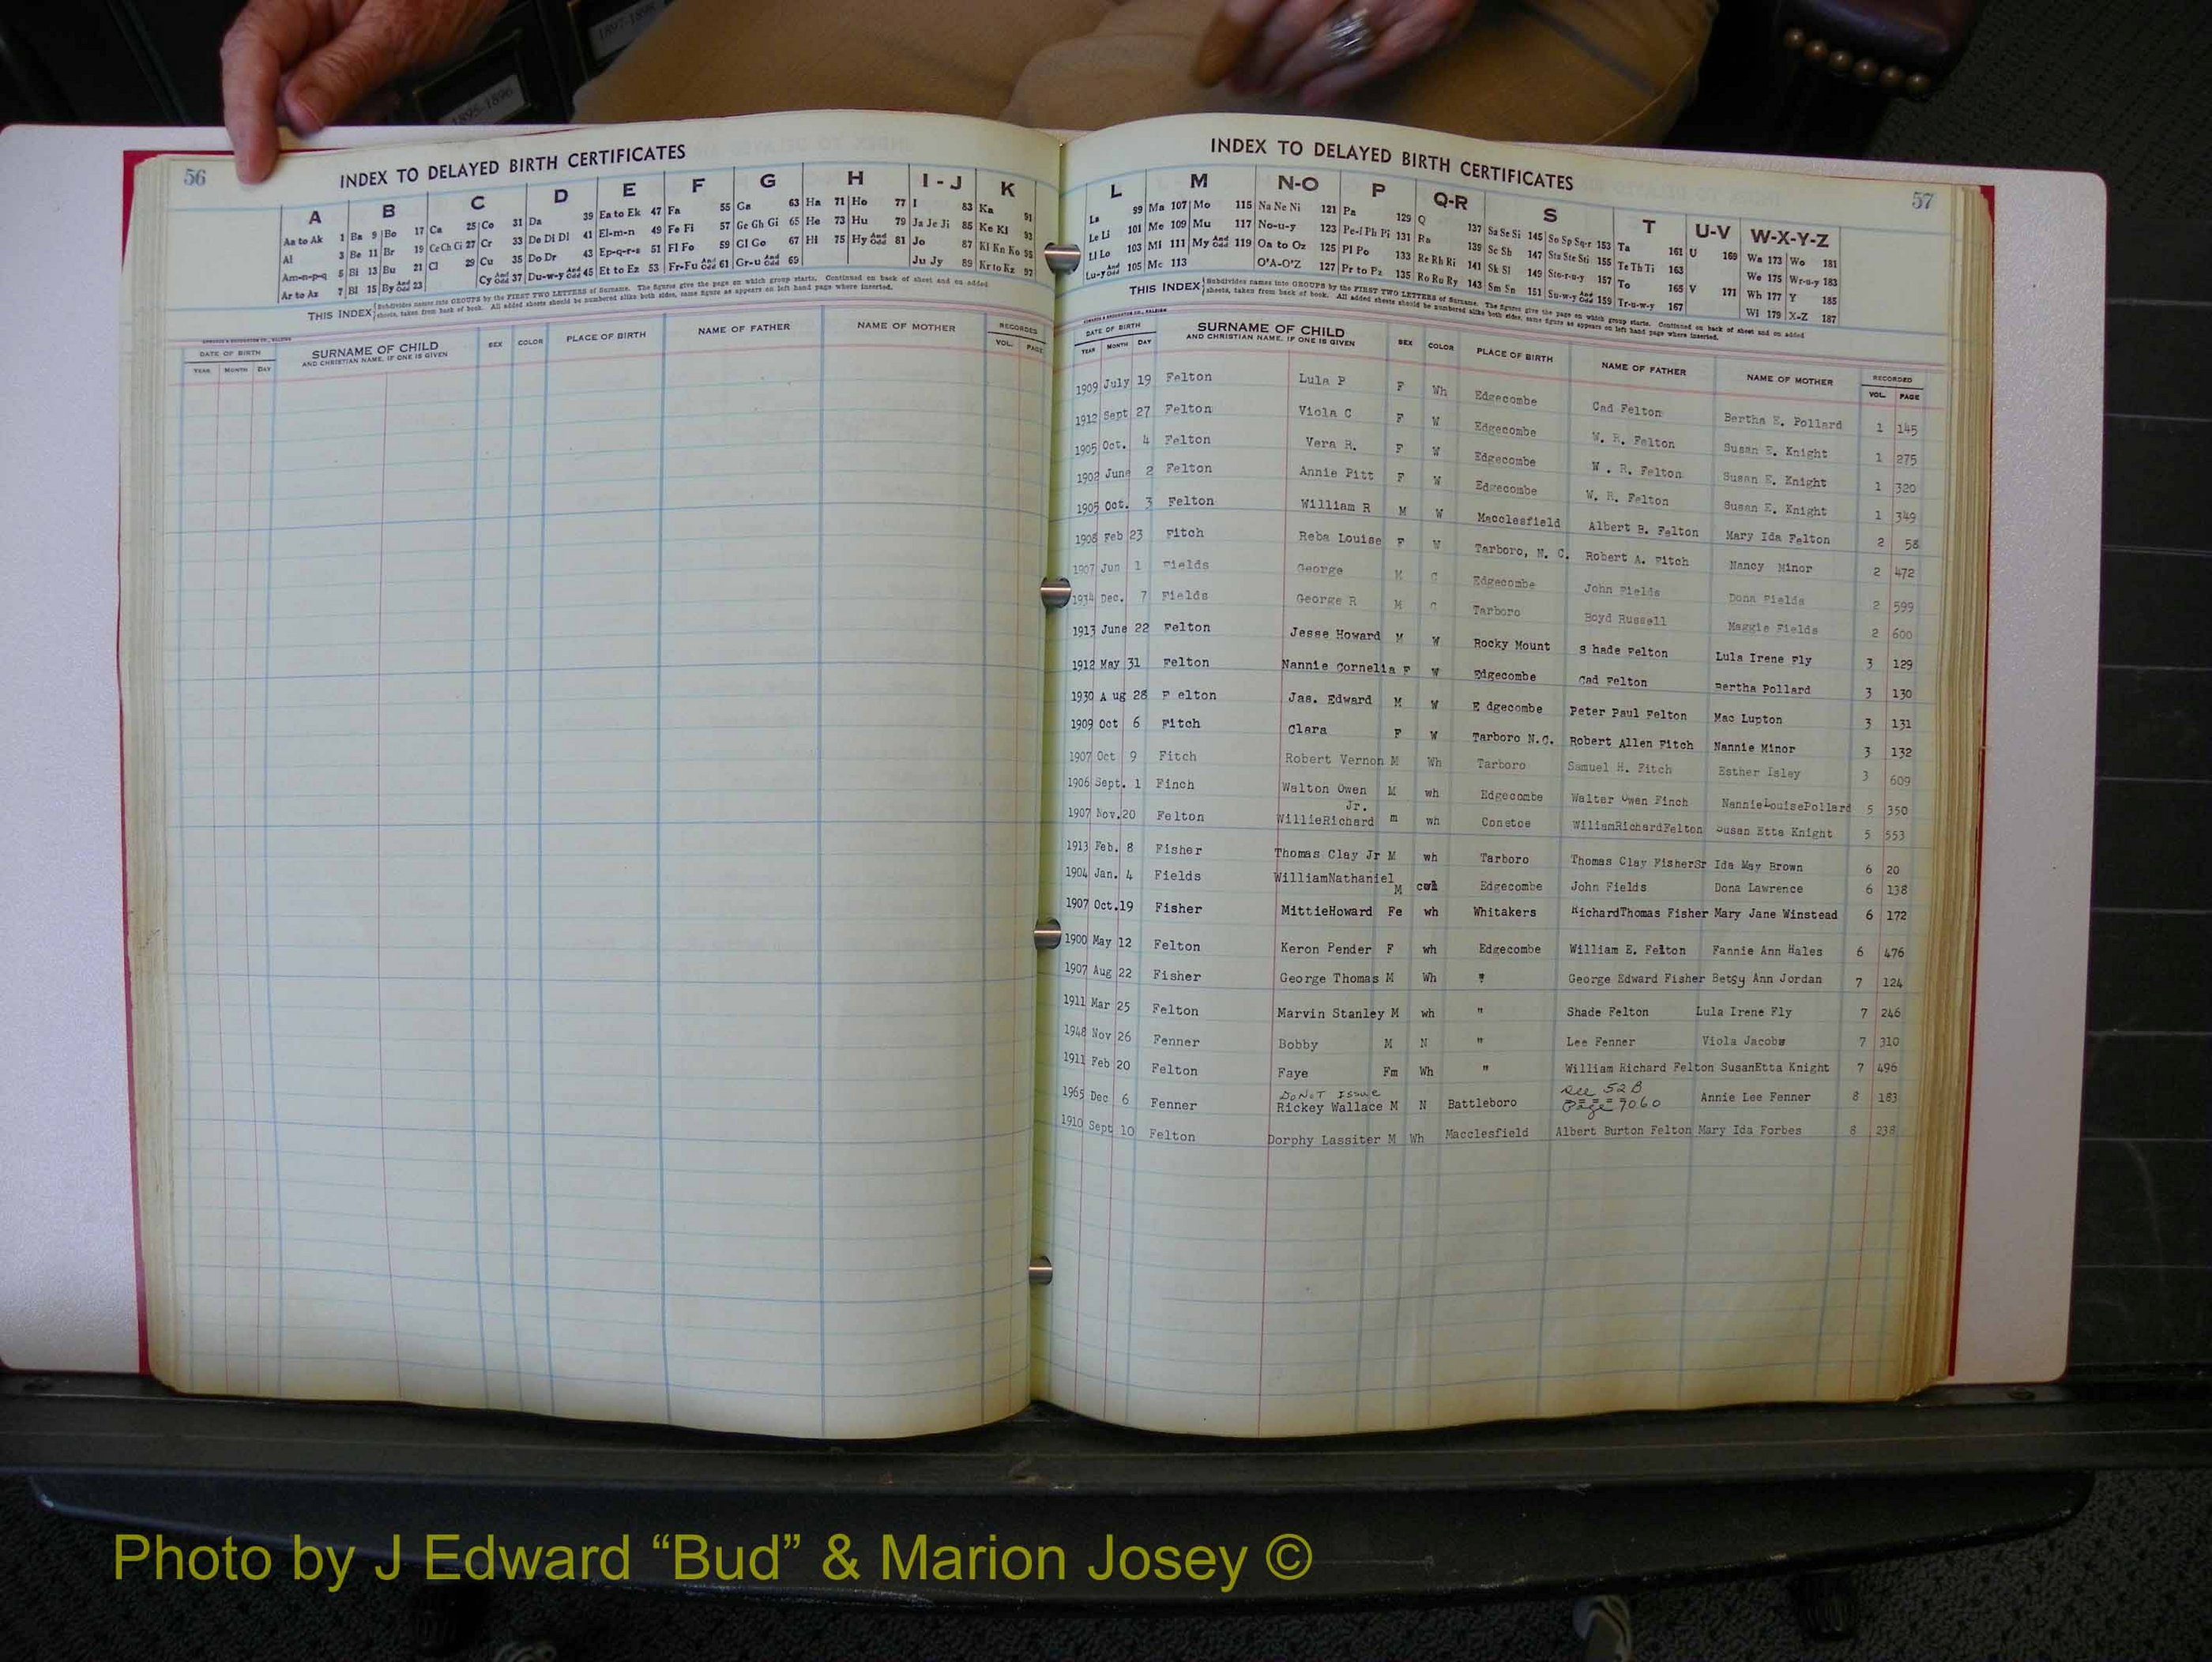 1897-1898
1895-1896
56
INDEX TO DELAYED BIRTH CERTIFICATES
A B C D E F G H I - J K
Aa to Ak 1 Ba 9 Bo 17 Ca 25 Co 31 Da 39 Ea to Ek 47 Fa 55 Ga 63 Ha 71 Ho 77 I 83 Ka 91
Al 3 Be 11 Br 19 Ce Ch Ci 27 Cr 33 De Di Dl 41 El-m-n 49 Fe Fi 57 Ge Gh Gi 65 He 73 Hu 79 Ja Je Ji 85 Ke Kl 93
Am-n-p-q 5 Bi 13 Bu 21 Cl 29 Cu 35 Do Dr 43 Ep-q-r-s 51 Fl Fo 59 Gl Go 67 Hi 75 Hy And Odd 81 Jo 87 Kl Kn Ko 95
Ar to Az 7 Bl 15 By And Odd 23 Cy And Odd 37 Du-w-y And Odd 45 Et to Ez 53 Fr-Fu And Odd 61 Gr-u And Odd 69 Ju Jy 89 Kr to Kz 97
THIS INDEX Subdivides names into GROUPS by the FIRST TWO LETTERS of Surname. The figures give the page on which group starts. Continued on back of sheet and on added
sheets, taken from back of book. All added sheets should be numbered alike both sides, same figure as appears on left hand page where inserted.
DATE OF BIRTH SURNAME OF CHILD SEX COLOR PLACE OF BIRTH NAME OF FATHER NAME OF MOTHER RECORDED
YEAR MONTH DAY AND CHRISTIAN NAME, IF ONE IS GIVEN VOL. PAGE
INDEX TO DELAYED BIRTH CERTIFICATES
57
L M N-O P Q-R S T U-V W-X-Y-Z
La 99 Ma 107 Mo 115 Na Ne Ni 121 Pa 129 Q 137 Sa Sc Si 145 So Sp Sq-r 153 Ta 161 U 169 Wa 173 Wo 181
Le Li 101 Me 109 Mu 117 No-u-y 123 Pe-f Ph Pi 131 Ra 139 Se Sh 147 Sta Ste Sti 155 Te Th Ti 163 We 175 Wr-u-y 183
Ll Lo 103 Mi 111 My And Odd 119 Oa to Oz 125 Pl Po 133 Re Rh Ri 141 Sk Sl 149 Sto-r-u-y 157 To 165 V 171 Wh 177 Y 185
Lu-y And Odd 105 Mc 113 O'A-O'Z 127 Pr to Pz 135 Ro Ru Ry 143 Sm Sn 151 Su-w-y And Odd 159 Tr-u-w-y 167 Wi 179 X-Z 187
THIS INDEX Subdivides names into GROUPS by the FIRST TWO LETTERS of Surname. The figures give the page on which group starts. Continued on back of sheet and on added
sheets, taken from back of book. All added sheets should be numbered alike both sides, same figure as appears on left hand page where inserted.
DATE OF BIRTH SURNAME OF CHILD SEX COLOR PLACE OF BIRTH NAME OF FATHER NAME OF MOTHER RECORDED
YEAR MONTH DAY AND CHRISTIAN NAME, IF ONE IS GIVEN VOL. PAGE
1909 July 19 Felton Lula P F Wh Edgecombe Cad Felton Bertha E. Pollard 1 145
1912 Sept 27 Felton Viola C F W Edgecombe W. R. Felton Susan E. Knight 1 275
1905 Oct. 4 Felton Vera R. F W Edgecombe W . R. Felton Susan E. Knight 1 320
1902 June 2 Felton Annie Pitt F W Edgecombe W. R. Felton Susan E. Knight 1 349
1905 Oct. 3 Felton William R M W Macclesfield Albert B. Felton Mary Ida Felton 2 58
1908 Feb 23 Fitch Reba Louise F W Tarboro, N. C. Robert A. Fitch Nancy Minor 2 472
1907 Jun 1 Fields George M C Edgecombe John Fields Dona Fields 2 599
1934 Dec. 7 Fields George R M C Tarboro Boyd Russell Maggie Fields 2 600
1913 June 22 Felton Jesse Howard M W Rocky Mount S hade Felton Lula Irene Fly 3 129
1912 May 31 Felton Nannie Cornelia F W Edgecombe Cad Felton Bertha Pollard 3 130
1930 A ug 28 F elton Jas. Edward M W E dgecombe Peter Paul Felton Mac Lupton 3 131
1909 Oct 6 Fitch Clara F W Tarboro N.C. Robert Allen Fitch Nannie Minor 3 132
1907 Oct 9 Fitch Robert Vernon M Wh Tarboro Samuel H. Fitch Esther Isley 3 609
1906 Sept. 1 Finch Walton Owen M wh Edgecombe Walter Owen Finch NannieLouisePollard 5 350
Jr.
1907 Nov.20 Felton WillieRichard m wh Conetoe WiliamRichardFelton Susan Etta Knight 5 553
1913 Feb. 8 Fisher Thomas Clay Jr M wh Tarboro Thomas Clay FisherSr Ida May Brown 6 20
1904 Jan. 4 Fields WilliamNathaniel M Edgecombe John Fields Dona Lawrence 6 138
1907 Oct.19 Fisher MittieHoward Fe wh Whitakers RichardThomas Fisher Mary Jane Winstead 6 172
1900 May 12 Felton Keron Pender F wh Edgecombe William E. Felton Fannie Ann Hales 6 476
1907 Aug 22 Fisher George Thomas M Wh " George Edward Fisher Betsy Ann Jordan 7 124
1911 Mar 25 Felton Marvin Stanley M wh " Shade Felton Lula Irene Fly 7 246
1948 Nov 26 Fenner Bobby M N " Lee Fenner Viola Jacobs 7 310
1911 Feb 20 Felton Faye Fm Wh " William Richard Felton SusanEtta Knight 7 496
DoNoT Issue See 52B
1965 Dec 6 Fenner Rickey Wallace M N Battleboro Page 7060 Annie Lee Fenner 8 183
1910 Sept 10 Felton Dorphy Lassiter M Wh Macclesfield Albert Burton Felton Mary Ida Forbes 8 238
Photo by J Edward “Bud” & Marion Josey ©